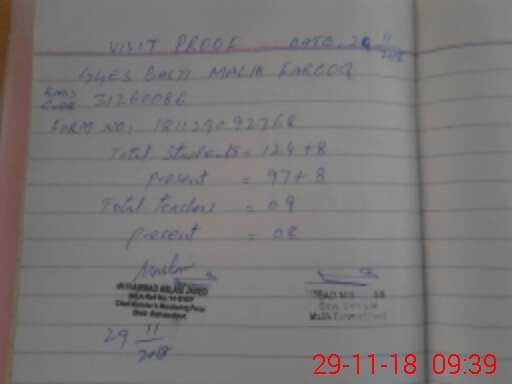 VISIT PROOF DATE-29 11/2018
GGES BASTI MALIK FAROOQ
EMIS CODE 31260086
FORM NO: 181129092768
Total Students = 124+8
present = 97+8
Total teachers = 09
present = 08
MUHAMMAD ASLAM JAVED
Chief Minister's Monitoring Force
Distt: Bahawalpur
29 11/2018
29-11-18 09:39